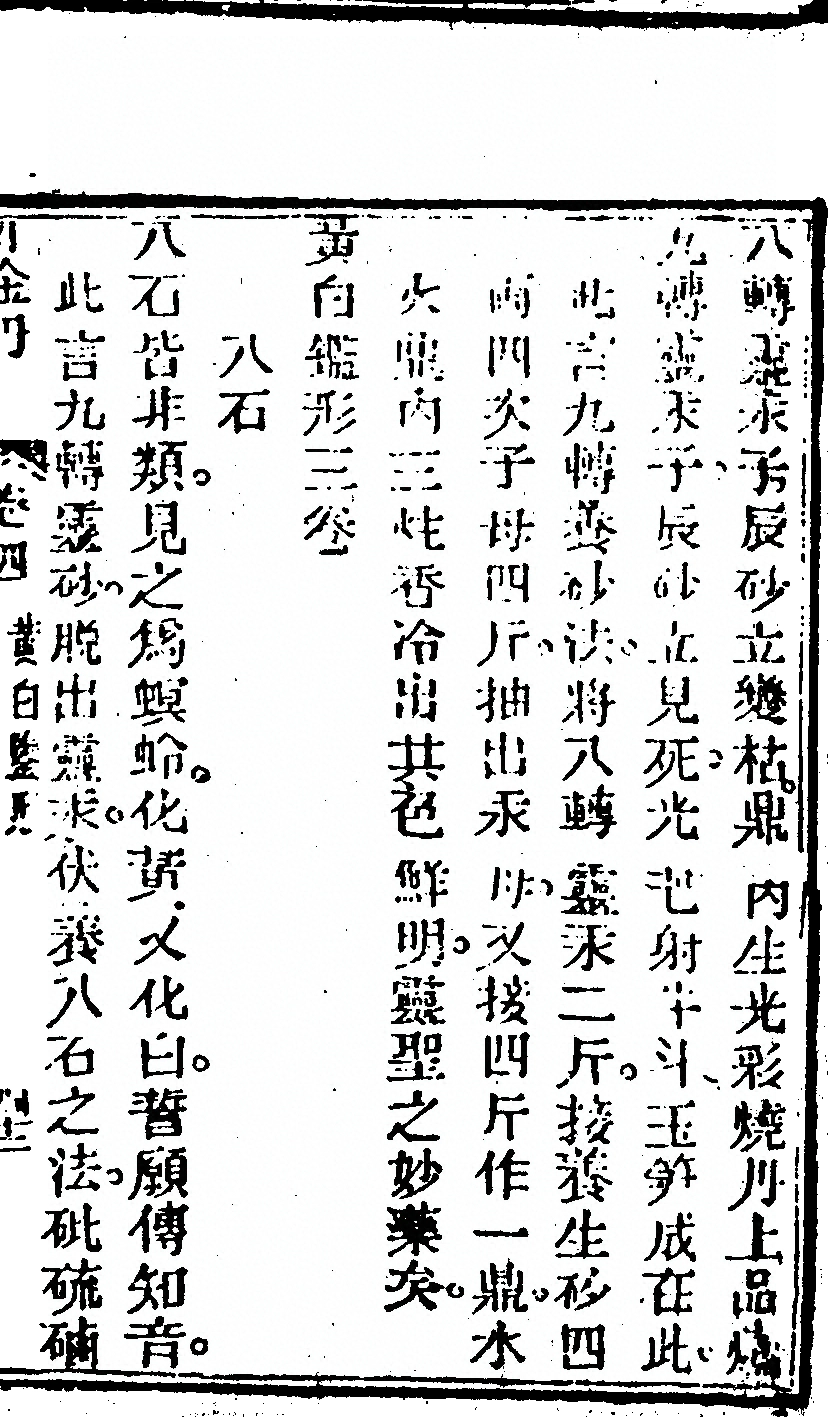 八轉靈汞子辰砂立變枯。鼎內生光彩燒丹上品爐
九轉靈汞子、辰砂立見死。光芒射牛斗、玉笄成在此。
此言九轉養砂法。將八轉靈汞二斤。接養生砂四
兩四次子母四斤。抽出汞母。又接四斤作一鼎。水
火鼎內三炷香冷出其色鮮明。靈聖之妙藥矣。
黃白鑑形三卷
八石
八石皆非類。見之爲螟蛉。化黃又化白。誓願傳知音。
此言九轉靈砂。脫出靈汞。伏養八石之法。砒硫硇
金丹 卷四 黃白鑑形